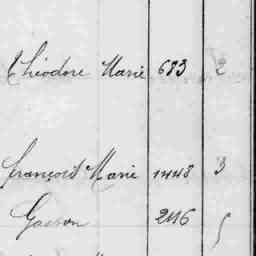 Théodore Marie 683 2
François Marie 1448 3
Gaston 2116 5